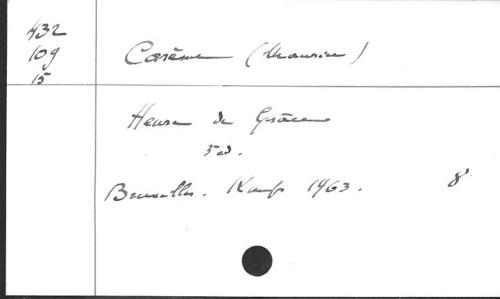 432
109
15
Carême (Maurice)
Heure de Grâce
5 ed.
Bruxelles. Kumps 1963. 8°